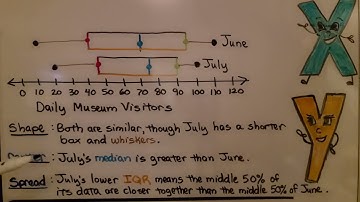 June
July
0 10 20 30 40 50 60 70 80 90 100 110 120
Daily Museum Visitors
Shape : Both are similar, though July has a shorter
box and whiskers.
: July's median is greater than June.
Spread : July's lower IQR means the middle 50% of
its data are closer together then the middle 50% of June.
X
Y